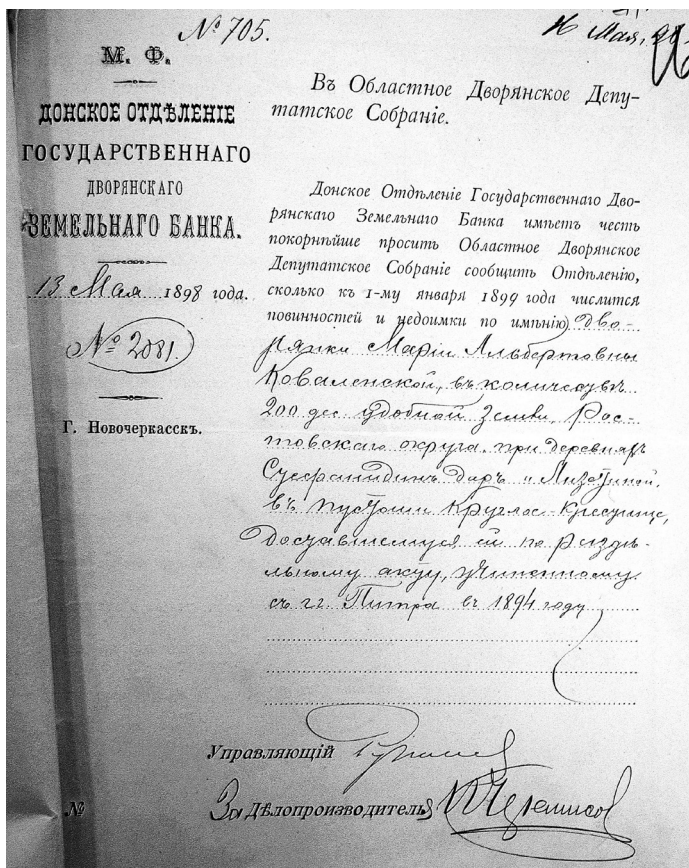 № 705.
16 Мая, 98
М. Ф.
ДОНСКОЕ ОТДѢЛЕНІЕ
ГОСУДАРСТВЕННАГО
ДВОРЯНСКАГО
ЗЕМЕЛЬНАГО БАНКА.
13 Мая 1898 года.
№ 2081.
Г. Новочеркасскъ.
Въ Областное Дворянское Депу-
татское Собраніе.
Донское Отдѣленіе Государственнаго Дво-
рянскаго Земельнаго Банка имѣетъ честь
покорнѣйше просить Областное Дворянское
Депутатское Собраніе сообщить Отдѣленію,
сколько къ 1-му января 1899 года числится
повинностей и недоимки по имѣнію дво-
рянки Маріи Альбертовны
Коваленской, въ количествѣ
200 дес удобной земли, Рос-
товскаго округа при деревняхъ
даръ и
въ пустоши
доставшемуся ей по раздѣ-
льному акту, учиненному
съ гг. въ 1894 году
Управляющій
За Дѣлопроизводитель
№